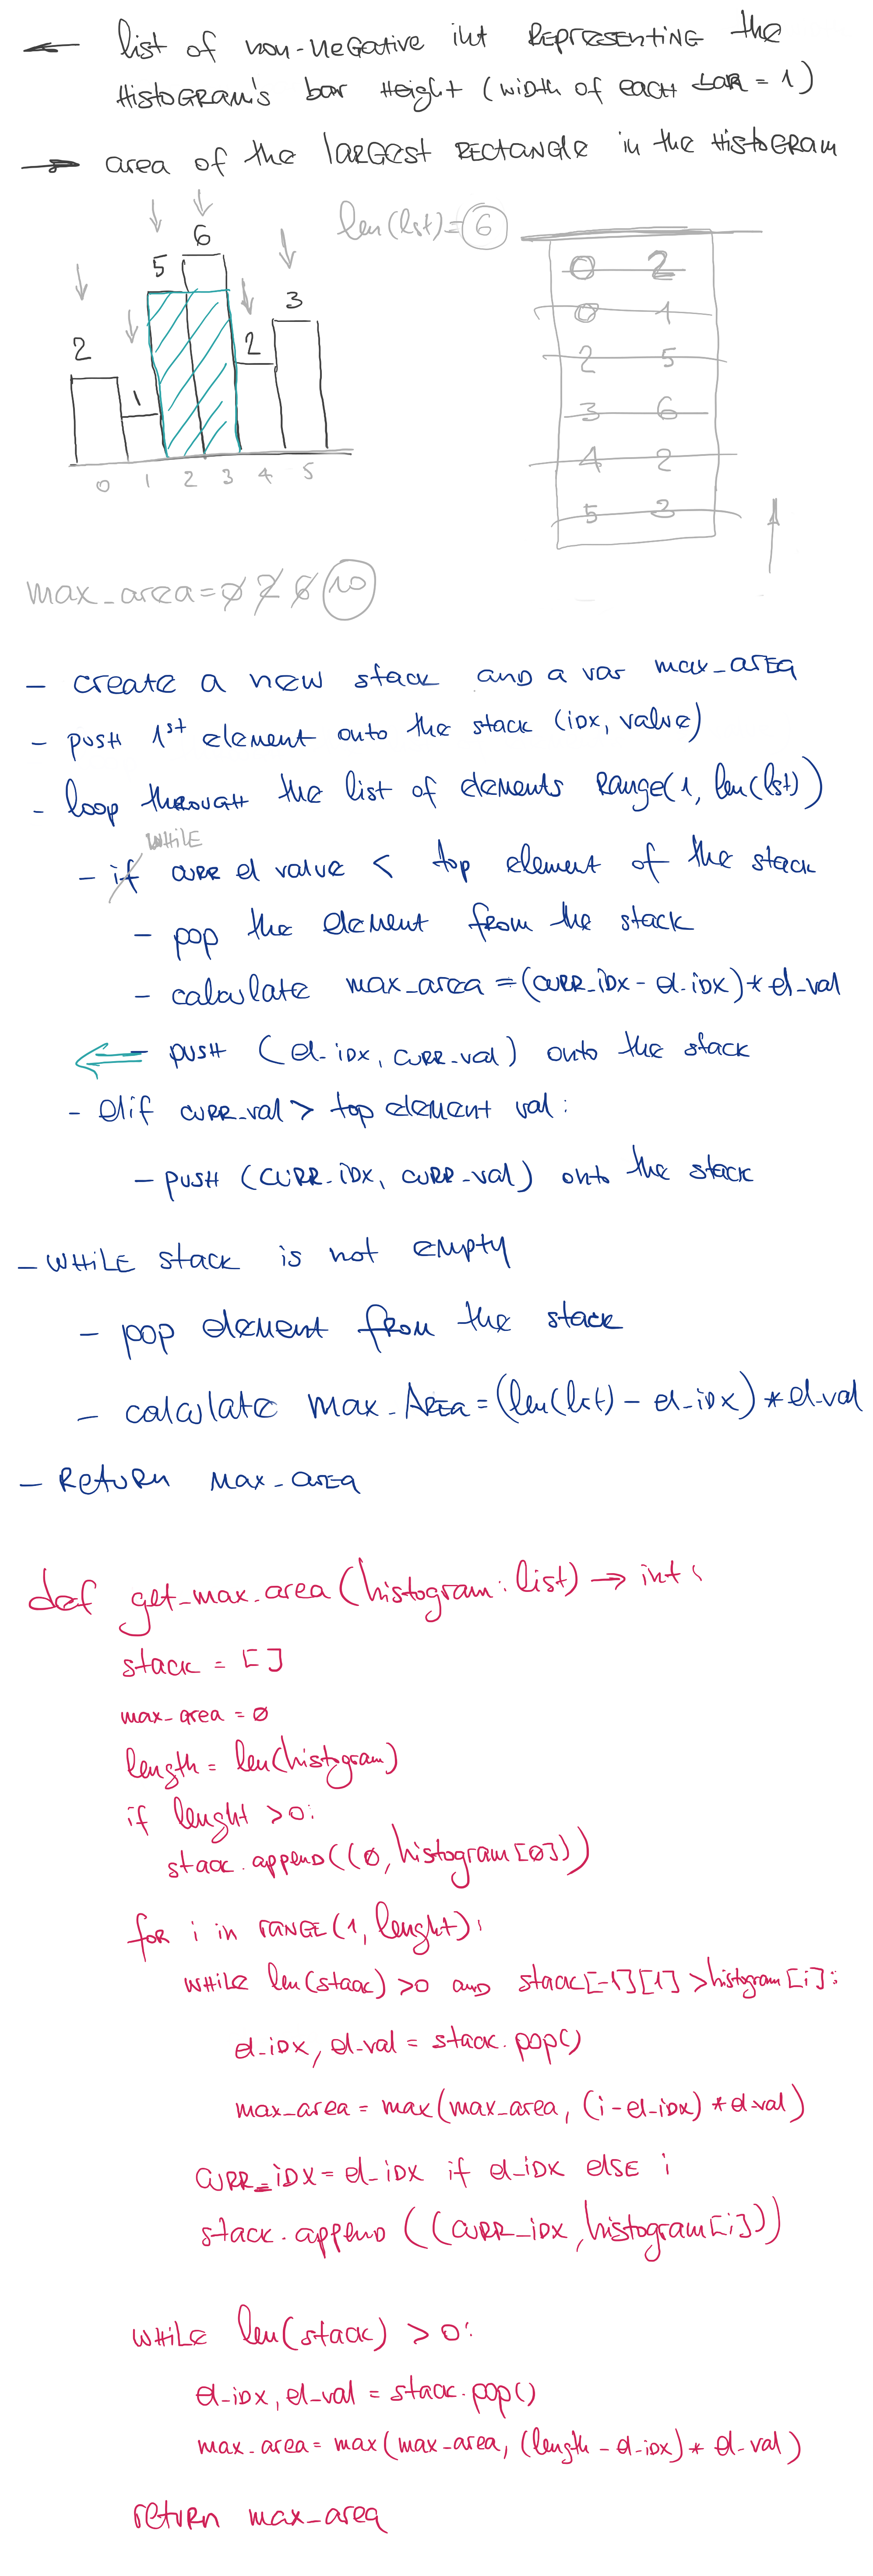 ← list of non-negative int representing the
histogram's bar height (width of each bar = 1)
→ area of the largest rectangle in the histogram
len(lst)=6
6
5
3
2
2
1
0 1 2 3 4 5
0 2
0 1
2 5
3 6
4 2
5 3
max_area=0 2 6 10
- create a new stack and a var max_area
- push 1st element onto the stack (idx, value)
- loop through the list of elements range(1, len(lst))
while
- if curr el value < top element of the stack
- pop the element from the stack
- calculate max_area = (curr_idx - el_idx) * el_val
⇐ - push (el_idx, curr_val) onto the stack
- elif curr_val > top element val:
- push (curr_idx, curr_val) onto the stack
- while stack is not empty
- pop element from the stack
- calculate max_area = (len(lst) - el_idx) * el_val
- return max_area
def get_max_area(histogram: list) → int:
stack = []
max_area = 0
length = len(histogram)
if lenght > 0:
stack.append((0, histogram[0]))
for i in range(1, lenght):
while len(stack) > 0 and stack[-1][1] > histogram[i]:
el_idx, el_val = stack.pop()
max_area = max(max_area, (i - el_idx) * el_val)
curr_idx = el_idx if el_idx else i
stack.append((curr_idx, histogram[i]))
while len(stack) > 0:
el_idx, el_val = stack.pop()
max_area = max(max_area, (length - el_idx) * el_val)
return max_area